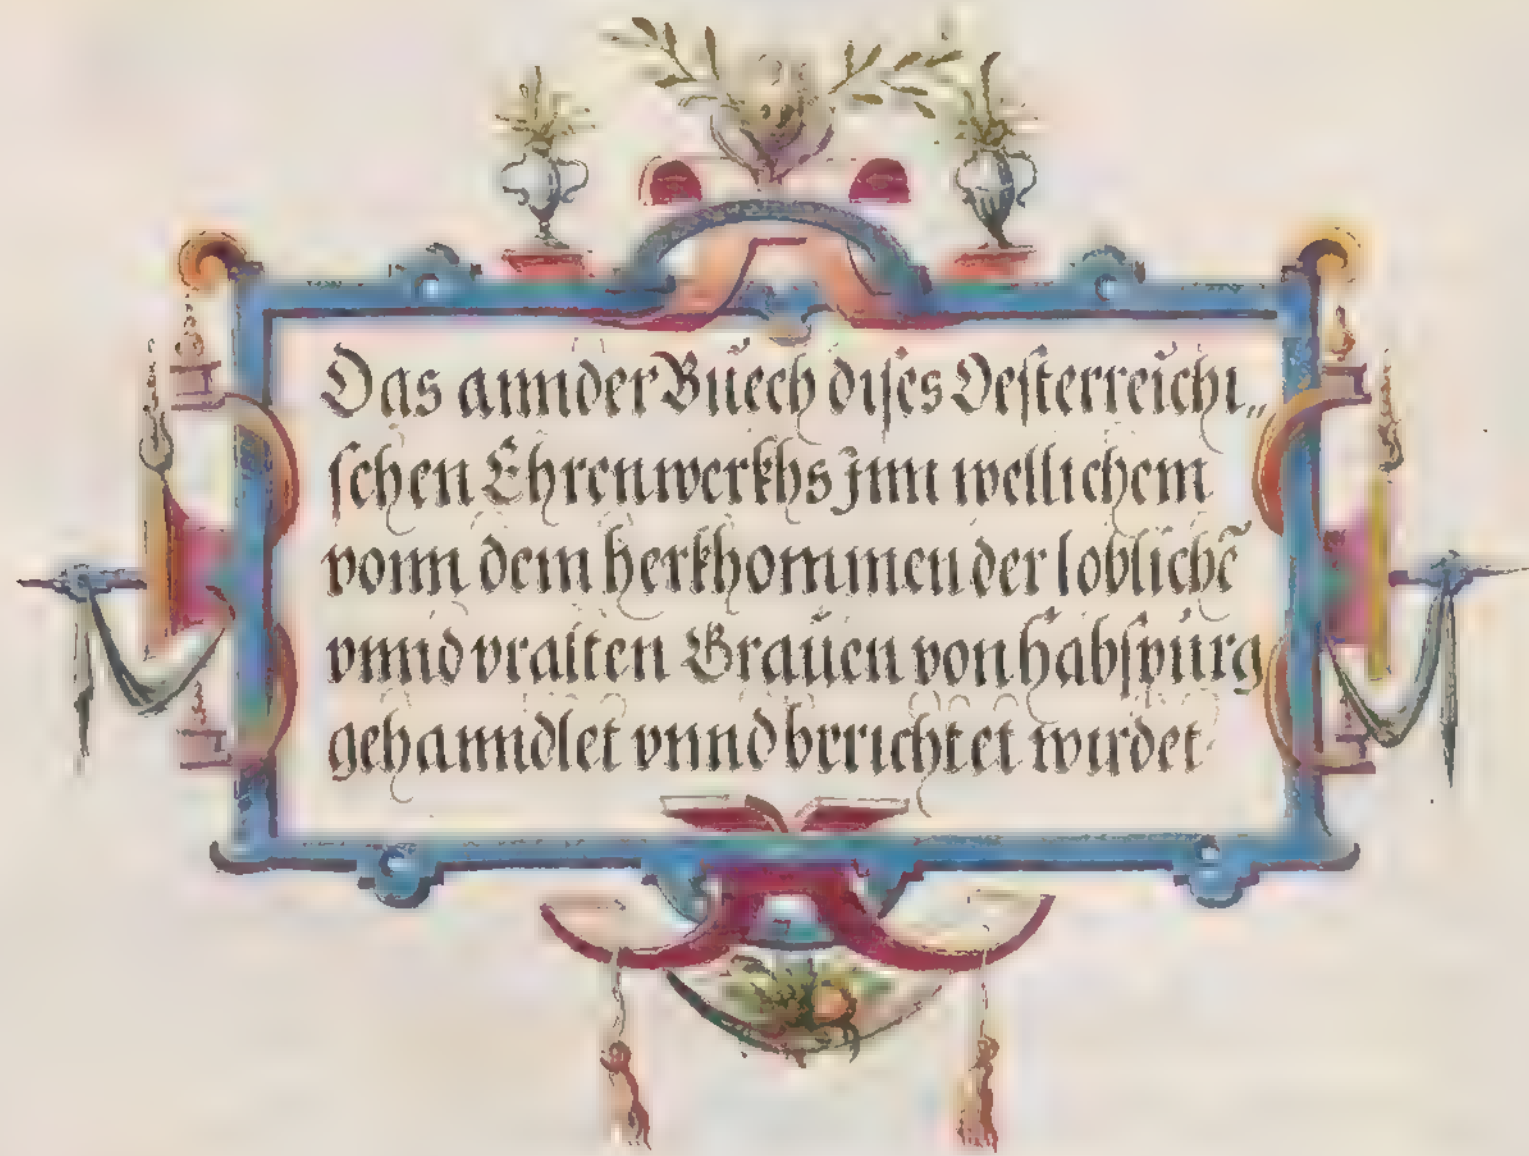 Das annder Buech dises Oesterreichi„
schen Ehrenwerkhs Jnn wellichem
vonn dem herkhommen der loblichẽ
vnnd vralten Grauen von habspurg
gehanndlet vnnd berichtet wirdet·